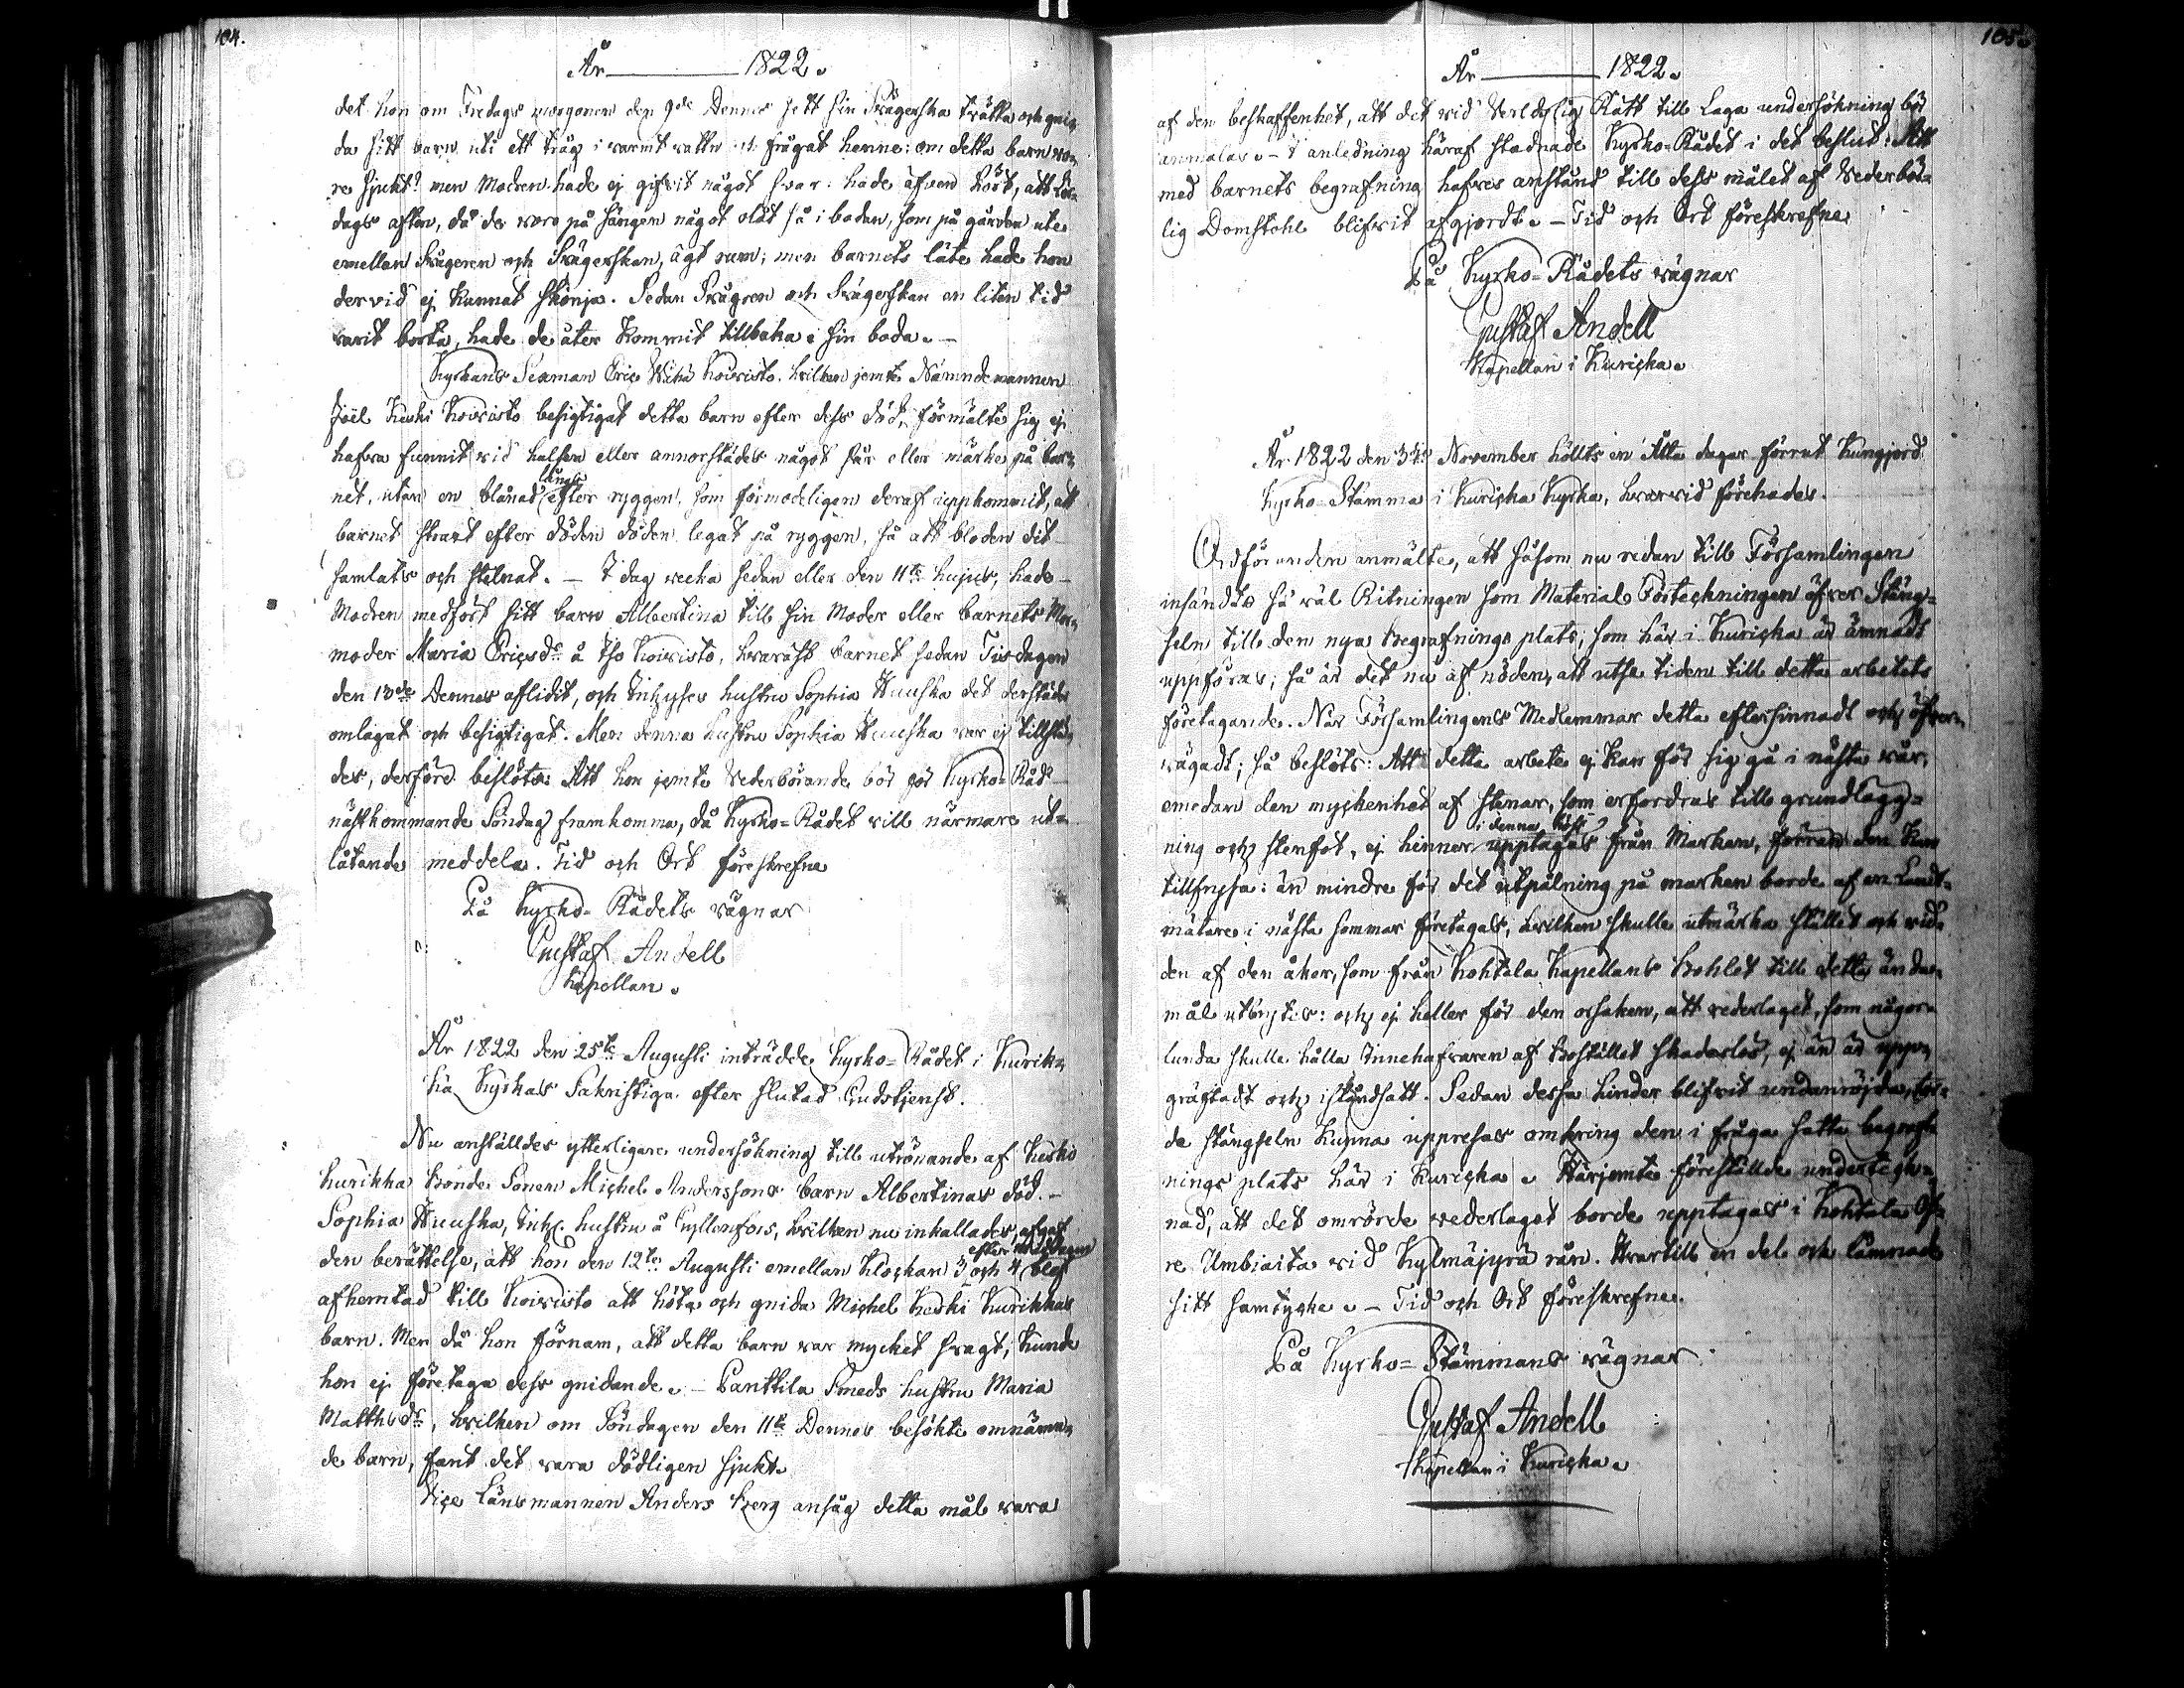 104.
År 1822.
det hon om Fredags morgonen den 9de Dennes sett sin Svägerska tvätta och gni-
da sitt barn uti ett tråg i varmt vattn och frågat henne: om detta barn vo-
re sjukt? men Modren hade ej gifvit något svar: hade äfven hört, att Lör-
dags afton, då de voro på sängen något olåt så i bodan, som på gården ute
emellan Svågeren och Svägerskan, ägt rum; men barnets läte hade hon
dervid ej kunnat skönja. Sedan Svågren och Svägerskan en liten tid
varit borta, hade de åter kommit tillbaka i sin boda.
Kyrkans Sexman Eric Koivisto, hvilken jemte Nämndemannen
Joël Keski Koivisto besigtigat detta barn efter dess död, förmälte sig ej
hafva funnit vid halsen eller annorstädes något sår eller märke på bar-
net, utan en blånad längs efter ryggen, som förmodeligen deraf uppkommit, att
barnet strax efter döden döden legat på ryggen, så att bloden dit
samlats och stelnat. – I dag vecka sedan eller den 11te hujus, hade
Modren medfört sitt barn Albertina till sin Moder eller barnets Mor-
moder Maria Ericsdr å Iso Koivisto, hvaräst barnet sedan Tisdagen
den 13de Dennes aflidit, och Inhyses hustru Sophia Huuska det derstädes
omlagat och besigtigat. Men denna hustru Sophia Huuska var ej tillstä-
des, derföre beslöts: Att hon jemte Vederbörande bör för Kyrko-Råd
nästkommande Söndag framkomma, då Kyrko-Rådet vill närmare ut-
låtande meddela. Tid och Ort föreskrefne
På Kyrko-Rådets vägnar
Gustaf Andell
Kapellan.
År 1822 den 25te Augusti inträdde Kyrko-Rådet i Kurik-
ka Kyrkas Sakristiga efter slutad Gudstjenst.
Nu anställdes ytterligare undersökning till utrönande af Keski
Kurikka Bonde Sonen Michel Anderssons barn Albertinas död. –
Sophia Huuska, Inh. hustru å Gyllenfors, hvilken nu inkallades, afgaf
den berättelse, att hon den 12te Augusti emellan klockan 3 och 4 efter middagen blef
afhemtad till Koivisto att höta och gnida Michel Keski Kurikkas
barn. Men då hon förnam, att detta barn var mycket svagt, kunde
hon ej företaga dess gnidande. – Panttila Smeds hustru Maria
Mattsdr, hvilken om Söndagen den 11te Dennes besökte omnämn-
de barn, fant det vara dödligen sjukt.
Vice Länsmannen Anders Berg ansåg detta mål vara
105.
År 1822.
af den beskaffenhet, att det vid Verldslig Rätt till Laga undersökning bör
anmälas. – I anledning häraf stadnade Kyrko-Rådet i det beslut: Att
med barnets begrafning hafves anstånd till dess målet af Vederbör-
lig Domstohl blifvit afgjordt. – Tid och Ort föreskrefne
På Kyrko-Rådets vägnar
Gustaf Andell
Kapellan i Kuricka.
År 1822 den 3die November höllts en Åtta dagar förrut kungjord
Kyrko-Stämma i Kuricka Kyrka, hvarvid förehades.
Ordföranden anmälte, att såsom nu redan till Församlingen
insändts så väl Ritningen som Material Förteckningen öfver Stäng-
seln till den nya Begrafnings plats, som här i Kuricka är ämnadt
uppföras; så är det nu af nöden, att utse tiden till detta arbetets
företagande. När Församlingens Medlemmar detta eftersinnadt och öfver-
vägadt; så beslöts: Att detta arbete ej kan för sig gå i nästa vår,
emedan den myckenhet af stenar, som erfordras till grundlägg-
ning och stenfot, ej hinner i denna höst upptagas från Marken, förran den kan
tillfrysa: än mindre för det utpålning på marken borde af en Landt-
mätare i nästa sommar företagas, hvilken skulle utmärka stället och vid-
den af den åker, som från Kohtala Kapellans Bohlet till detta ända-
mål utbytes: och ej heller för den orsaken, att vederlaget, som någor-
lunda skulle hålla Innehafvaren af Bostället skadeslös, ej än är upp-
gräftadt och iståndsatt. Sedan dessa hinder blifvit undanröjda, bor-
de stängseln kunna uppresas omkring den i fråga satta begraf-
nings plats här i Kuricka. Härjemte föreställde underteck-
nad, att det omrörde vederlaget borde upptagas i Kohtala Öf-
re Umbiaita vid Kylmäjyrä rån. Hvartill en del och lämnade
sitt samtycke. – Tid och Ort föreskrefne.
På Kyrko-Stämmans vägnar
Gustaf Andell
Kapellan i Kuricka.